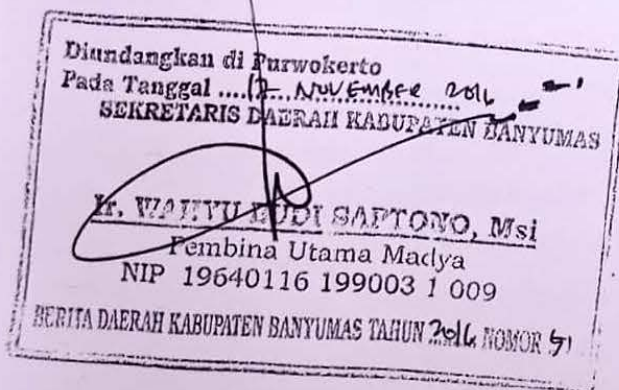 Diundangkan di Purwokerto
Pada Tanggal ....17 NOVEMBER 2016
SEKRETARIS DAERAH KABUPATEN BANYUMAS
Ir. WAHYU BUDI SAPTONO, Msi
Pembina Utama Madya
NIP 19640116 199003 1 009
BERITA DAERAH KABUPATEN BANYUMAS TAHUN 2016 NOMOR